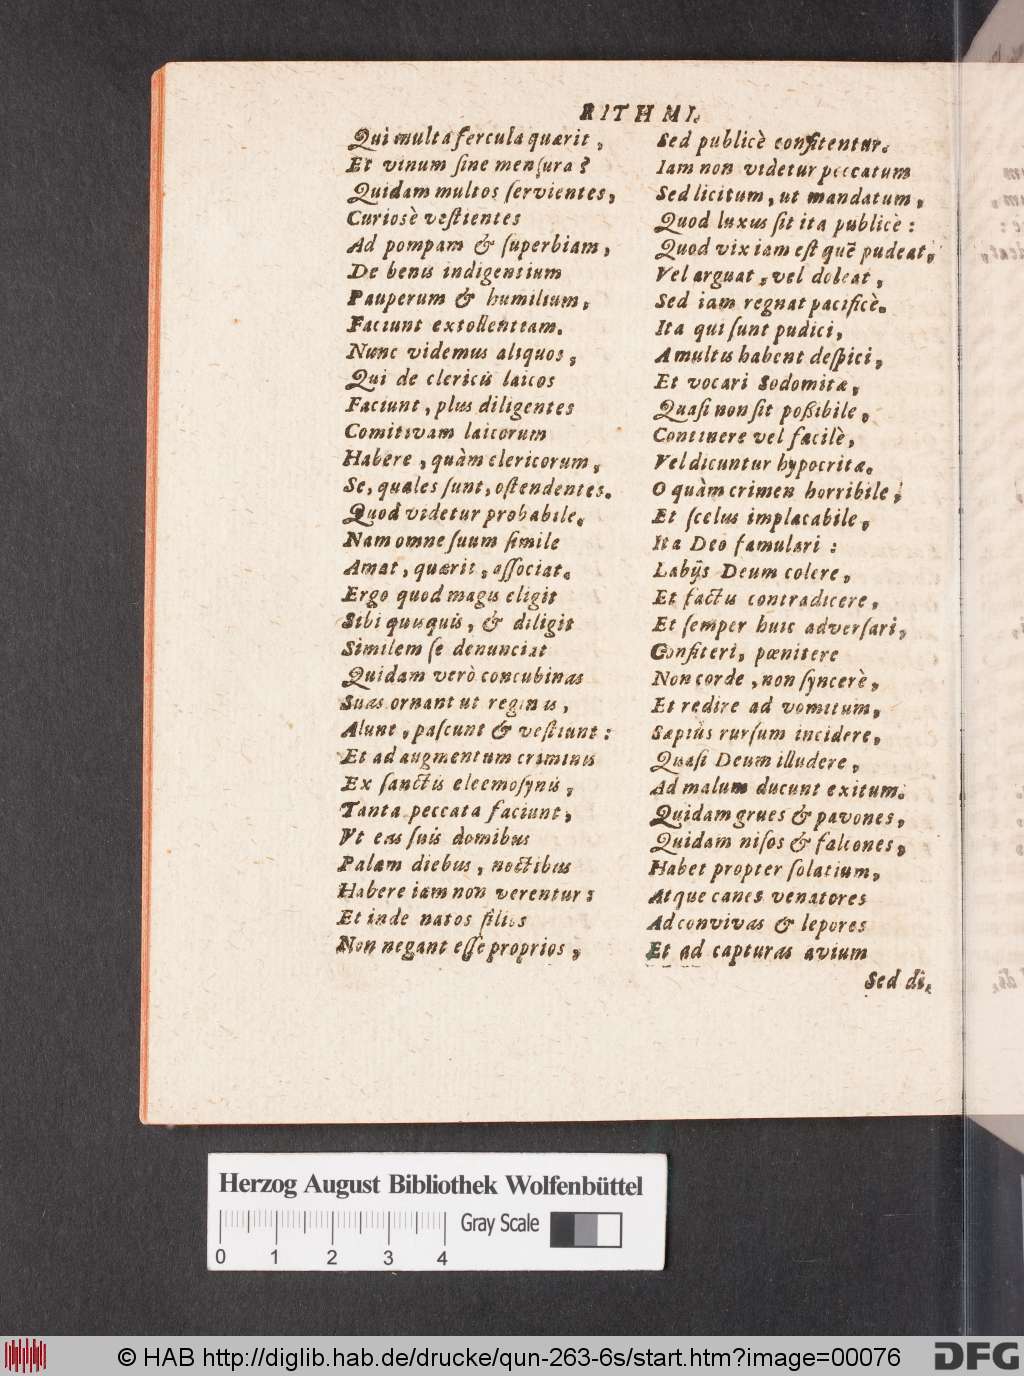 RITHMI.
Qui multa fercula quærit,
Et vinum ſine menſura?
Quidam multos ſervientes,
Curioſè veſtientes
Ad pompam & ſuperbiam,
De bonis indigentium
Pauperum & humilium,
Faciunt extollentiam.
Nunc videmus aliquos,
Qui de clericis laicos
Faciunt, plus diligentes
Comitivam laicorum
Habere, quàm clericorum,
Se, quales ſunt, oſtendentes.
Quod videtur probabile.
Nam omne ſuum ſimile
Amat, quærit, aſſociat.
Ergo quod magis eligit
Sibi quisquis, & diligit
Similem ſe denunciat
Quidam verò concubinas
Suas ornant ut reginas,
Alunt, paſcunt & veſtiunt:
Et ad augmentum criminis
Ex ſanctis eleemoſynis,
Tanta peccata faciunt,
Vt eas ſuis domibus
Palam diebus, noctibus
Habere iam non verentur:
Et inde natos filios
Non negant eſſe proprios,
Sed publicè confitentur.
Iam non videtur peccatum
Sed licitum, ut mandatum,
Quod luxus ſit ita publicè:
Quod vix iam eſt quē pudeat,
Vel arguat, vel doleat,
Sed iam regnat pacificè.
Ita qui ſunt pudici,
A multis habent deſpici,
Et vocari Sodomitæ,
Quaſi non ſit poßibile,
Continere vel facilè,
Vel dicuntur hypocritæ.
O quàm crimen horribile,
Et ſcelus implacabile,
Ita Deo famulari:
Labijs Deum colere,
Et factis contradicere,
Et ſemper huic adverſari,
Confiteri, pœnitere
Non corde, non ſyncerè,
Et redire ad vomitum,
Sæpiùs rurſum incidere,
Quaſi Deum illudere,
Ad malum ducunt exitum.
Quidam grues & pavones,
Quidam niſos & falcones,
Habet propter ſolatium,
Atque canes venatores
Ad convivas & lepores
Et ad capturas avium
Sed di-
Herzog August Bibliothek Wolfenbüttel
Gray Scale
0 1 2 3 4
© HAB http://diglib.hab.de/drucke/qun-263-6s/start.htm?image=00076
DFG